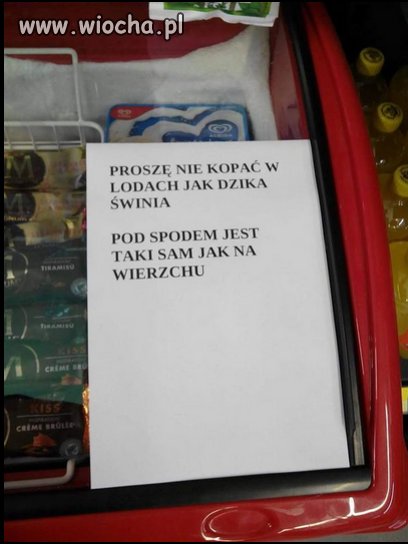 www.wiocha.pl
PROSZĘ NIE KOPAĆ W
LODACH JAK DZIKA
ŚWINIA
POD SPODEM JEST
TAKI SAM JAK NA
WIERZCHU
TIRAMISÙ
TIRAMISÙ
CRÈME BRÛL
KISS
CRÈME BRÛLÉE